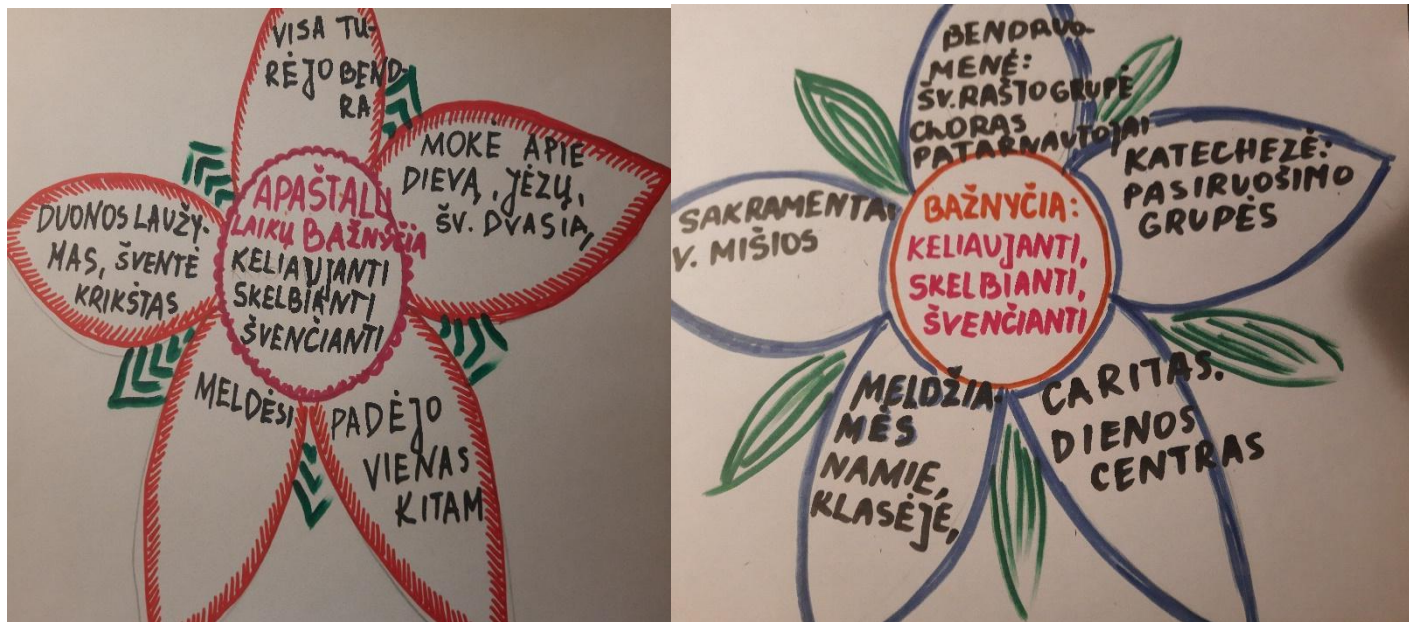 VISA TU-
RĖJO BEND-
RA
MOKĖ APIE
DIEVĄ, JĖZŲ,
ŠV. DVASIĄ,
DUONOS LAUŽY-
MAS, ŠVENTĖ
KRIKŠTAS
APAŠTALŲ
LAIKŲ BAŽNYČIA
KELIAUJANTI
SKELBIANTI
ŠVENČIANTI
MELDĖSI
PADĖJO
VIENAS
KITAM
BENDRUO-
MENĖ:
ŠV. RAŠTO GRUPĖ
CHORAS
PATARNAUTOJAI
KATECHEZĖ:
PASIRUOŠIMO
GRUPĖS
SAKRAMENTAI
V. MIŠIOS
BAŽNYČIA:
KELIAUJANTI,
SKELBIANTI,
ŠVENČIANTI
MELDŽIA-
MĖS
NAMIE,
KLASĖJĖ,
CARITAS.
DIENOS
CENTRAS